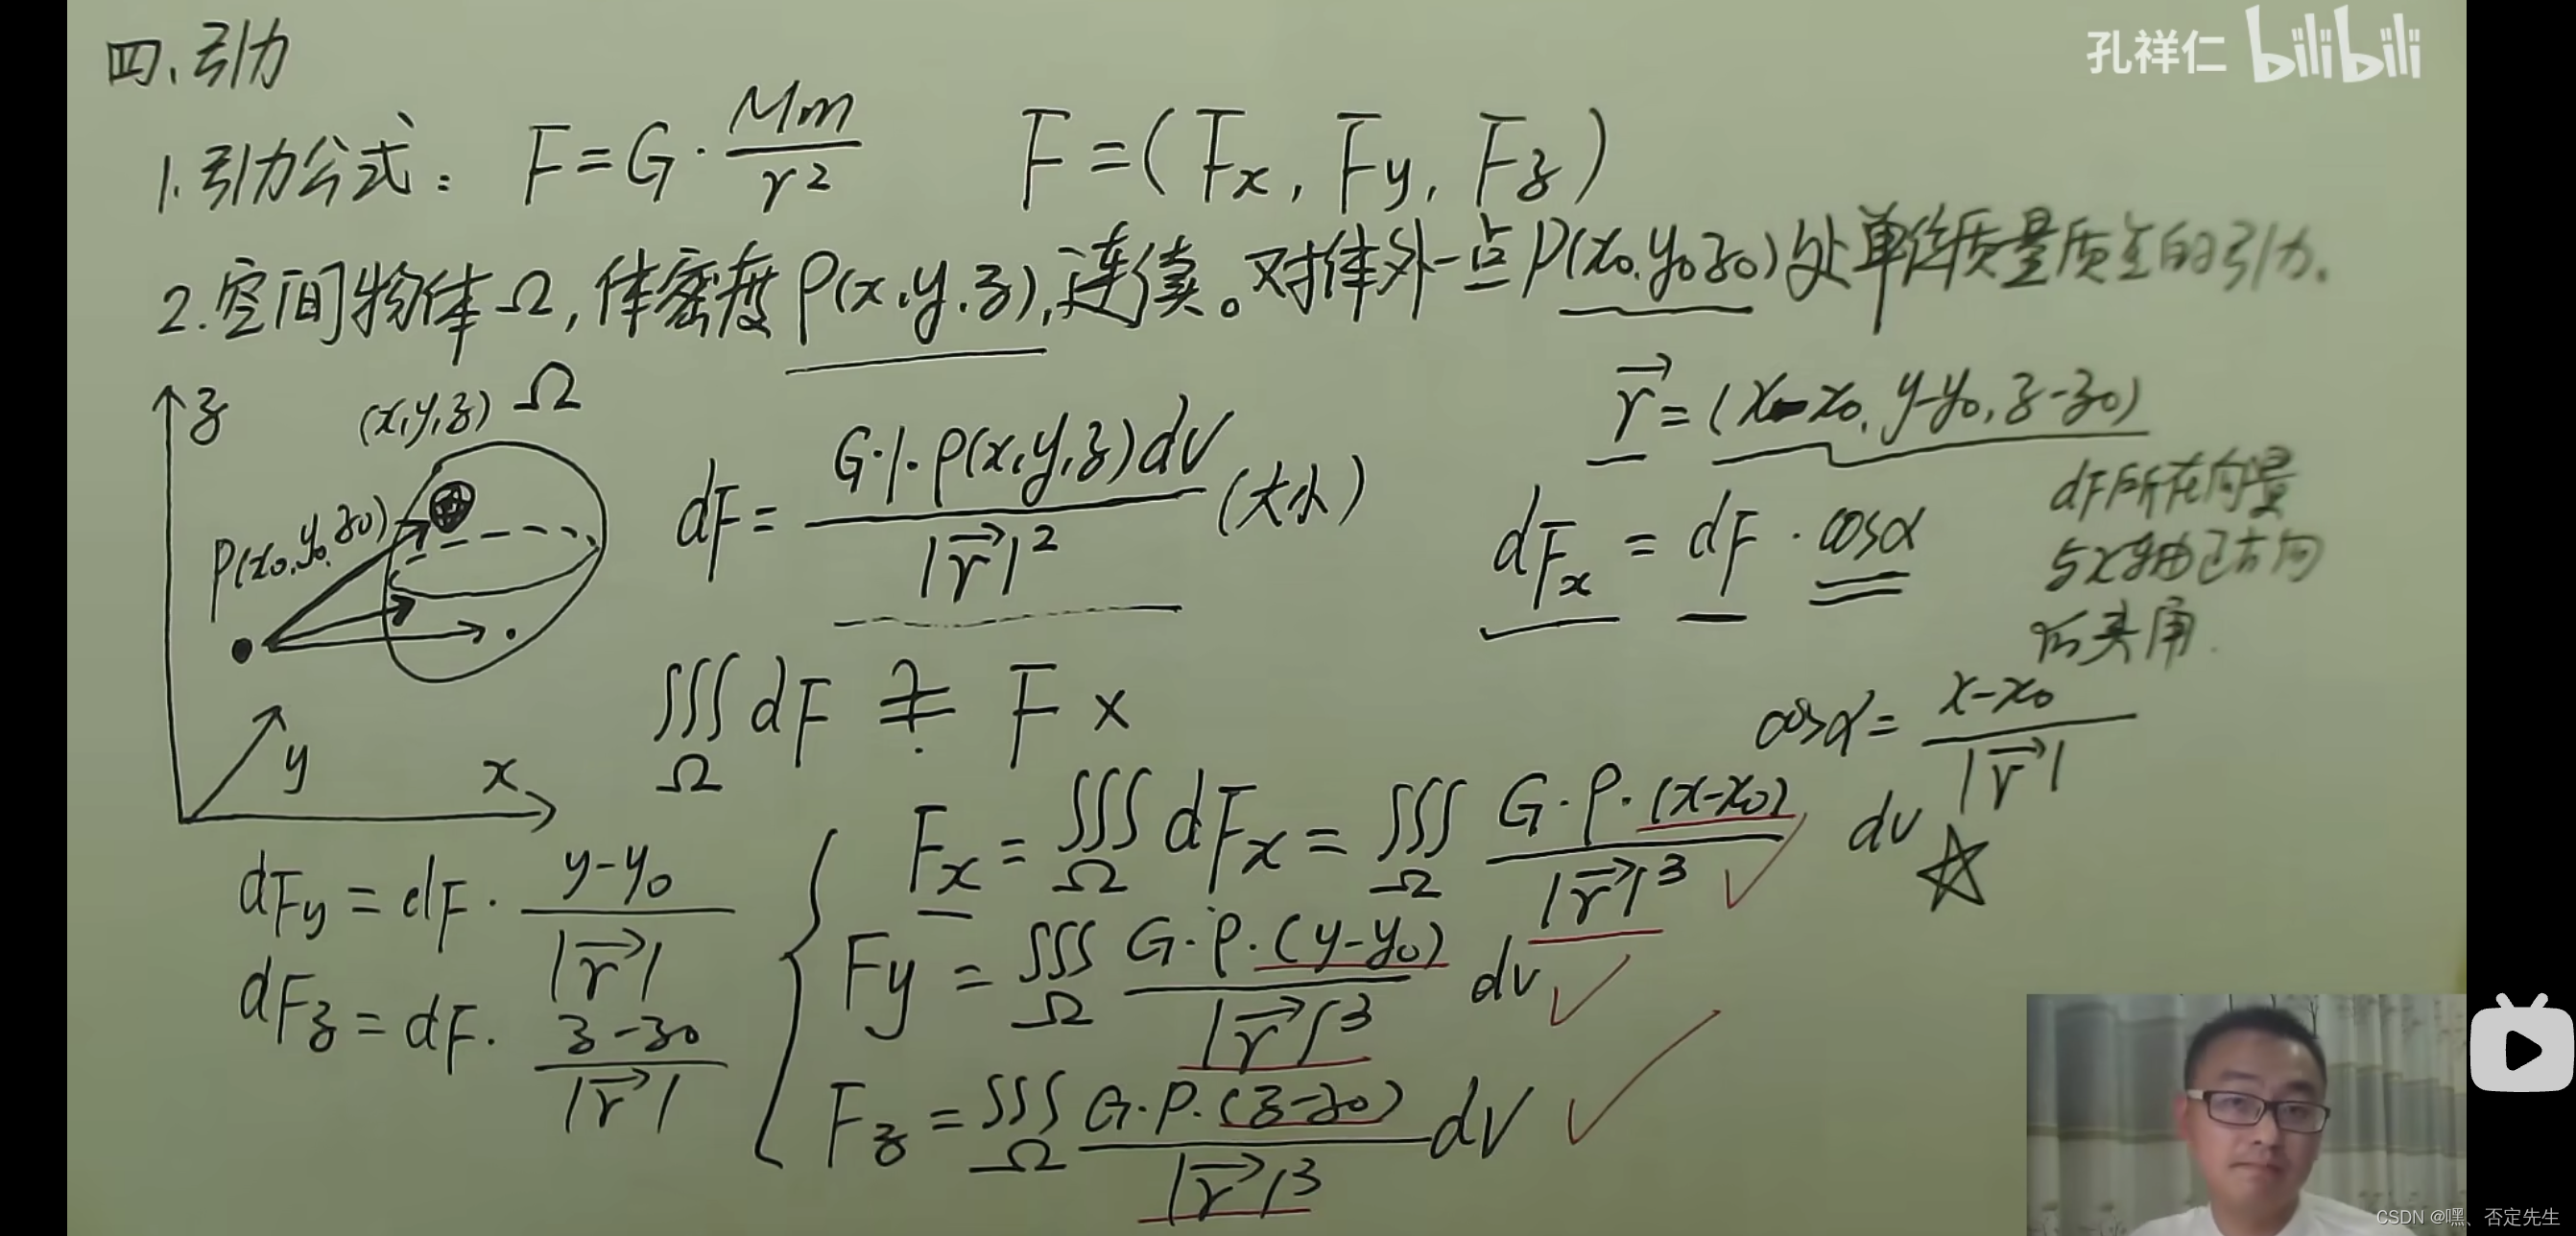 孔祥仁 bilibili
四、引力
1.引力公式: F=G·Mm/r² F=(Fx, Fy, Fz)
2.空间物体Ω,体密度ρ(x,y,z),连续。对体外一点P(x₀,y₀,z₀)处单位质量质点的引力.
z (x,y,z) Ω
P(x₀,y₀,z₀)
y x
dF=G·1·ρ(x,y,z)dV/|r⃗|² (大小)
r⃗=(x-x₀, y-y₀, z-z₀)
dFx = dF·cosα
dF所在向量
与x轴正方向
的夹角.
cosα=x-x₀/|r⃗|
∭Ω dF ≠? F ×
dFy = dF·y-y₀/|r⃗|
dFz = dF·z-z₀/|r⃗|
Fx = ∭Ω dFx = ∭Ω G·ρ·(x-x₀)/|r⃗|³ dv
Fy = ∭Ω G·ρ·(y-y₀)/|r⃗|³ dv
Fz = ∭Ω G·ρ·(z-z₀)/|r⃗|³ dV
CSDN @嘿、否定先生